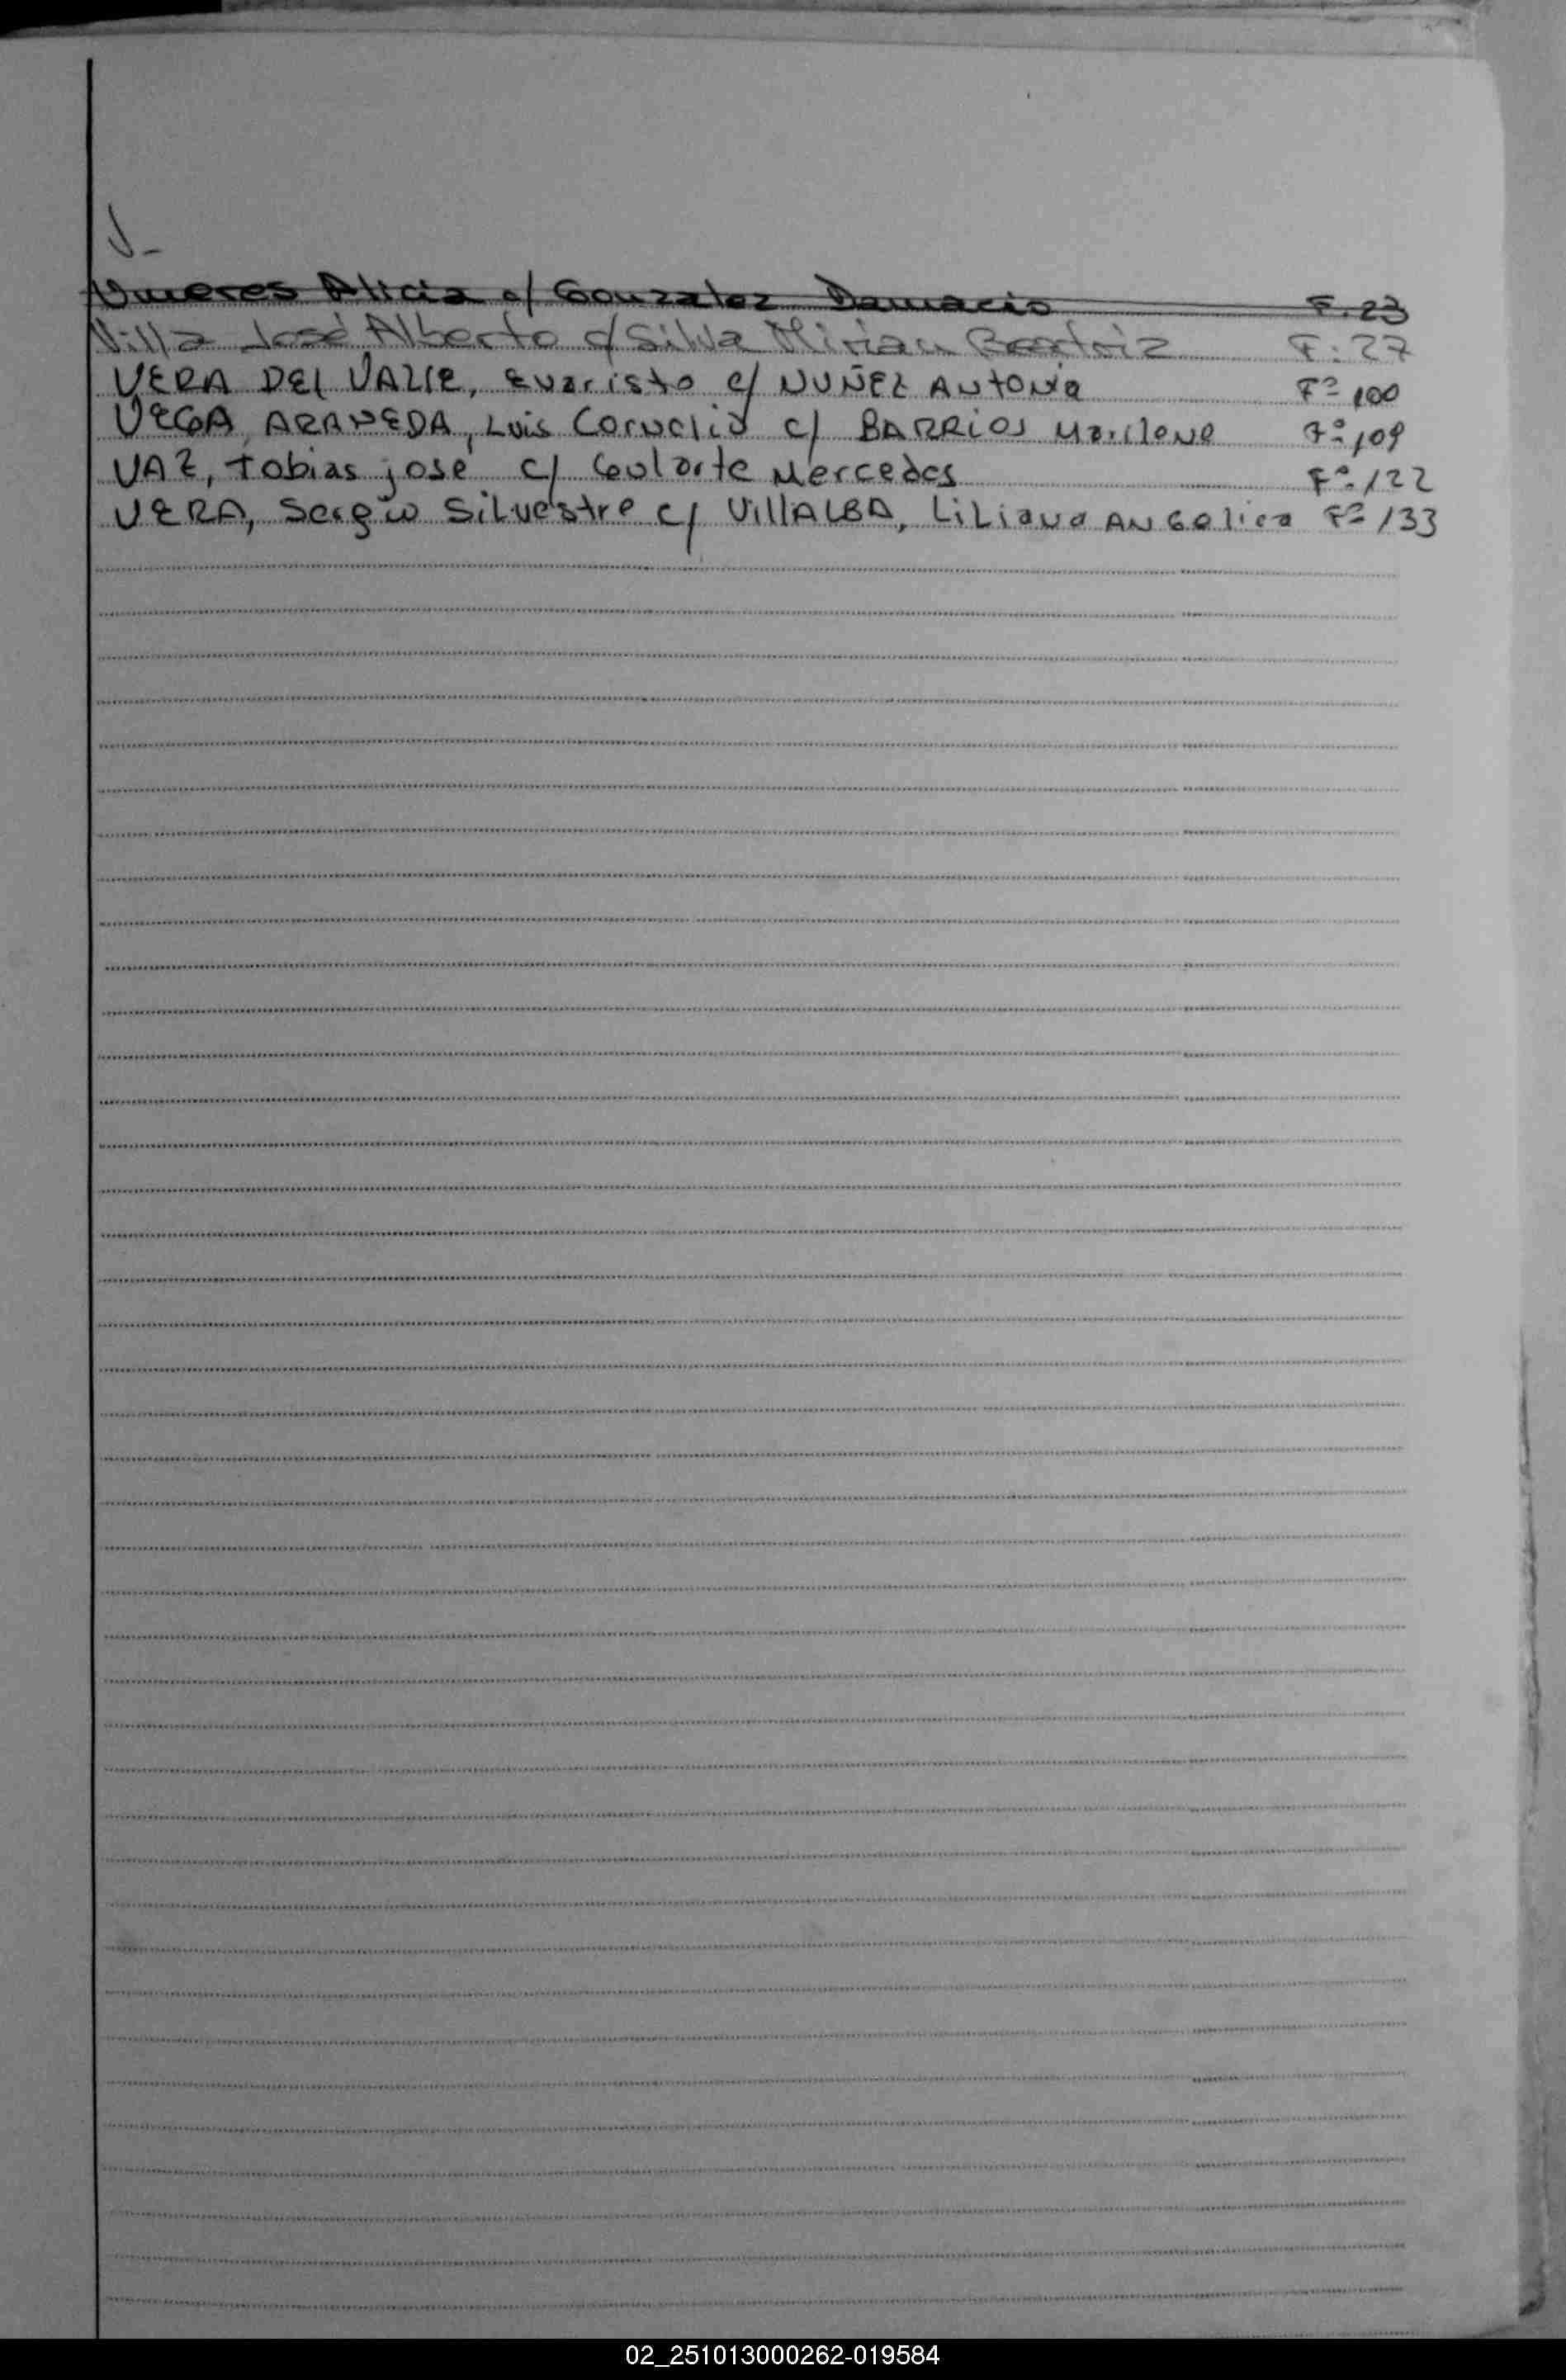 V-
Alicia c/ Gonzalez Damacio F. 23
Villa José Alberto c/ Silva Mirian Beatriz F. 27
VERA DEl VAllE, Evaristo c/ NUÑEZ ANtONia Fº 100
VEGA ARAVEDA, Luis Cornelio c/ BARRIOS Marilene Fº 109
VAZ, tobias josé c/ Goularte Mercedes Fº 122
VERA, Sergio SiLvestre c/ VillALBA, LiLiana ANGelica Fº 133
02_251013000262-019584